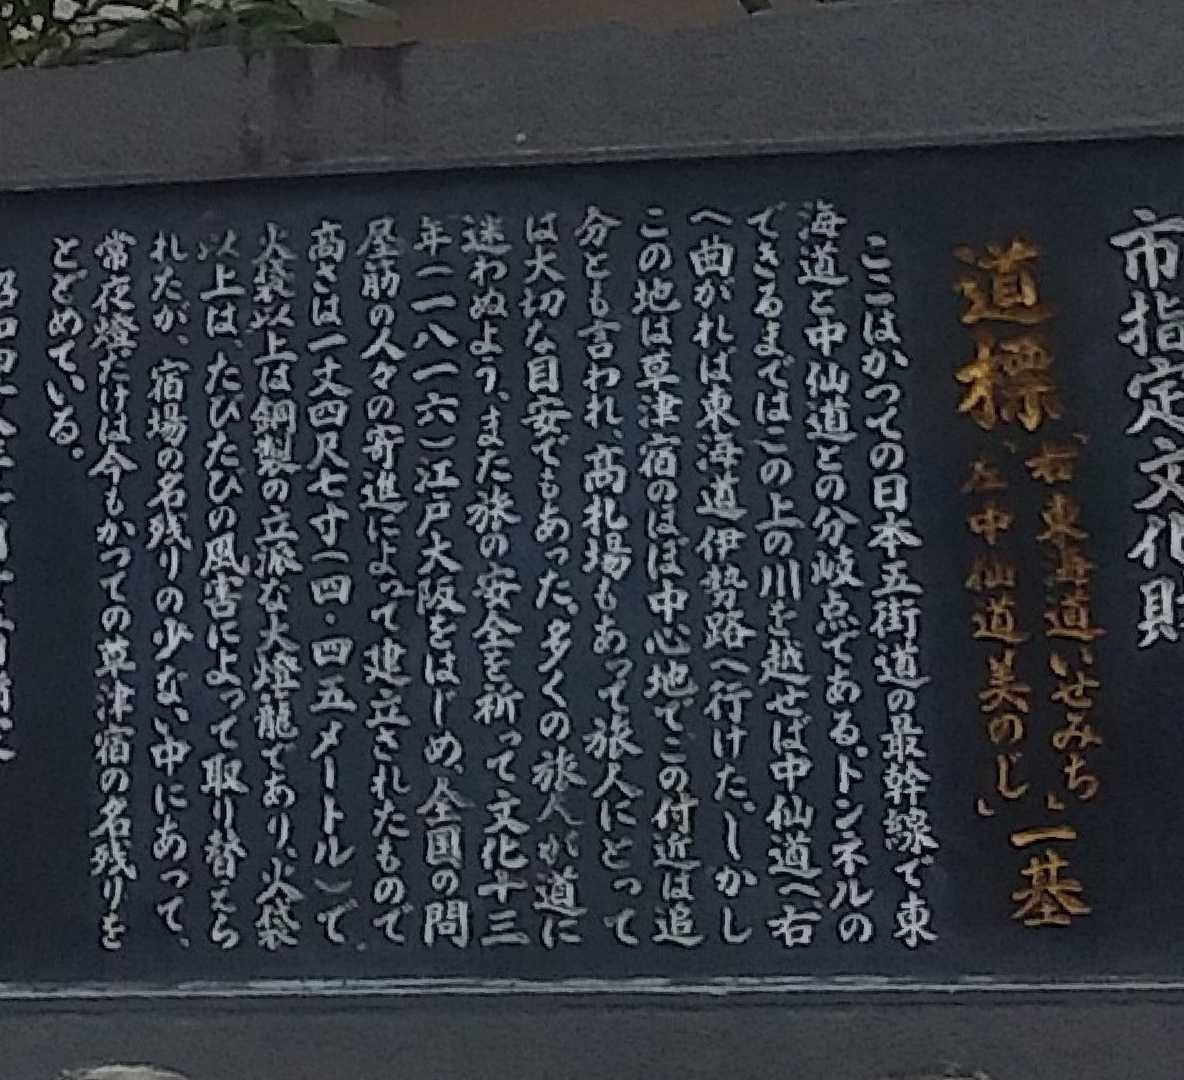 市指定文化財
道標「右東海道いせみち」「左中仙道美のじ」一基
ここはかつての日本五街道の最幹線で東
海道と中仙道との分岐点である。トンネルの
できるまではこの上の川を越せば中仙道へ右
へ曲がれば東海道伊勢路へ行けた。しかし
この地は草津宿のほぼ中心地でこの付近は追
分とも言われ、高札場もあって旅人にとって
は大切な目安でもあった。多くの旅人が道に
迷わぬよう、また旅の安全を祈って文化十三
年(一八一六)江戸大阪をはじめ、全国の問
屋筋の人々の寄進によって建立されたもので
高さは一丈四尺七寸(四・四五メートル)で
火袋以上は銅製の立派な大燈籠であり、火袋
以上は、たびたびの風害によって取り替えら
れたが、宿場の名残りの少ない中にあって、
常夜燈だけは今もかつての草津宿の名残りを
とどめている。